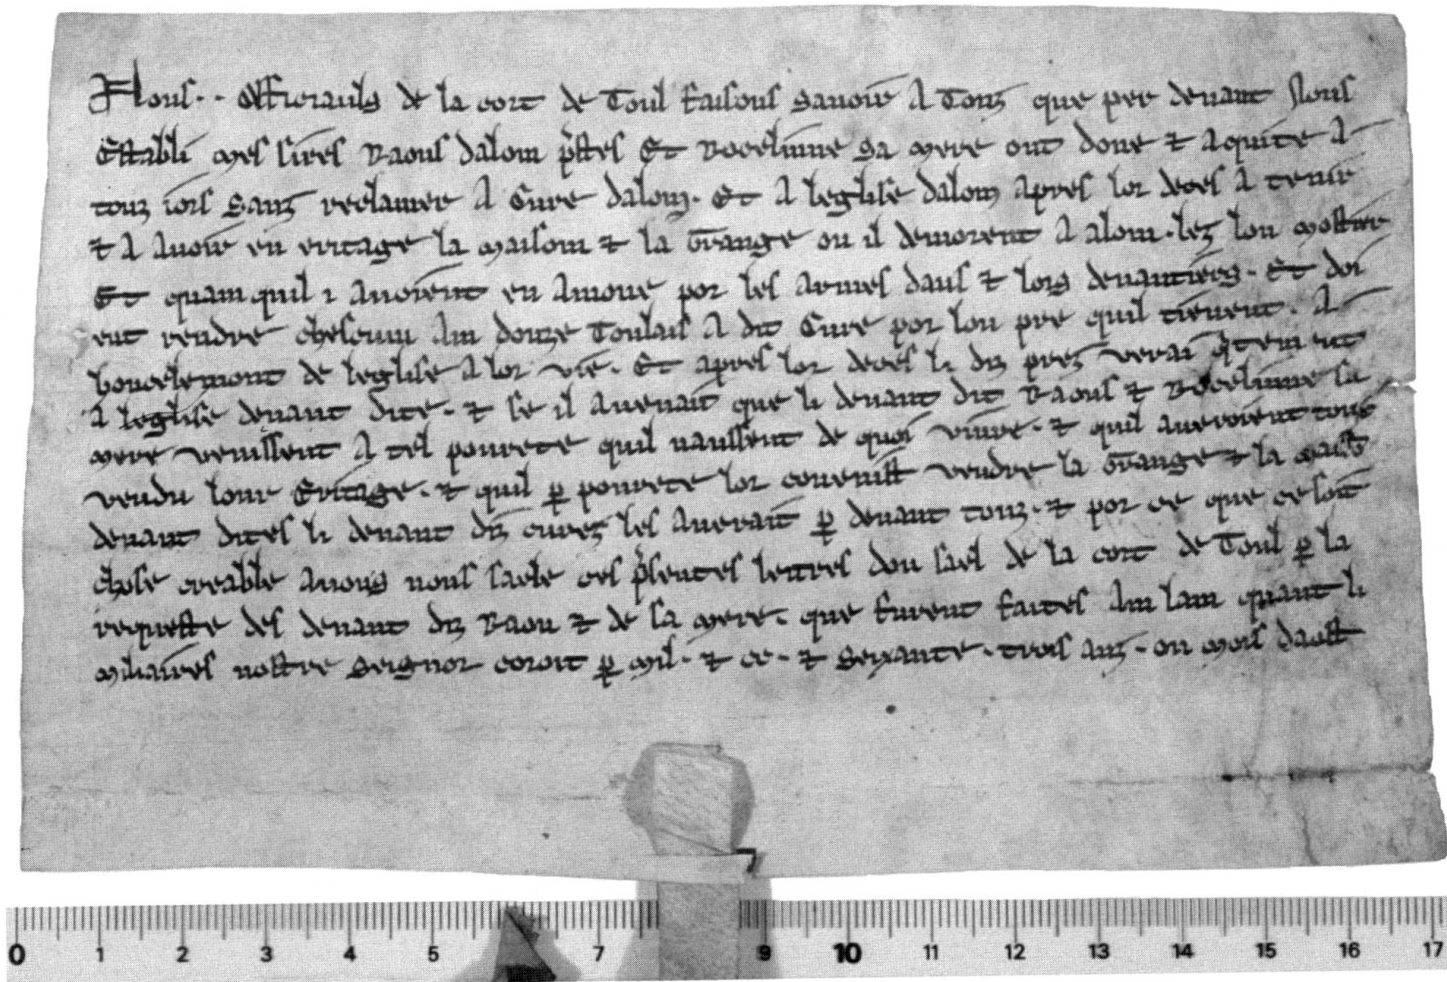 Nous · · Officiauls de la cort de Toul faisons savoir A Touz que per devant Nous
Establi mes sires Raous dalom p̾stes Et Rocelinne sa mere ont done ⁊ Aquite A
touz iors sauz reclamer A Cure dalom · Et A leglise dalom apres lor deces A tenir
⁊ A Avoir en eritage la maisom ⁊ la Grange ou il demorent A alom · lez lou mostier
Et quam quil i Avoient en Amone por les Armes daus ⁊ lors devantiers · Et doi
ent rendre chescunn Am douze Toulais A dit Cure por lou pre quil tienent · A
boucelemont de leglise A lor vie · Et apres lor deces li diz prez verai q̾tement
A leglise devant dite · ⁊ se il Avenait que li devant dit Raous ⁊ Rocelinne sa
mere venissent A tel povrete quil naussent de quoi vivre · ⁊ quil Averoient touz
vendu lour Eritage · ⁊ quil p̱ povrete lor covenist vendre la Grange ⁊ la mais̄
devant dites li devant diz curez les Averait p̱ devant touz · ⁊ por ce que ce soit
chose creable Avons nous saele ces p̾sentes lettres dou sael de la cort de Toul p̱ la
requeste des devant diz Raou ⁊ de sa mere · que furent faites Am lam quant li
miliaires nostre Seignor coroit p̱ mil · ⁊ cc · ⁊ sexante · trois anz · ou mois daost
0 1 2 3 4 5 7 9 10 11 12 13 14 15 16 17